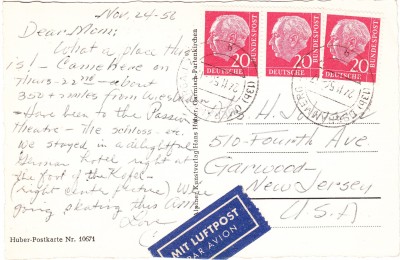 Nov. 24-56
Dear Mom:
What a place this
is! - Came here on
Thurs - 22nd - about
350 + miles from
Have been to the Passion
Theatre - The schloss - or
We stayed in a delightful
German hotel right at
the foot of the Kofel -
(right center picture) Were
going skating this
Love
Huber-Postkarte Nr. 10671
Kunstverlag Hans Huber, Garmisch-Partenkirchen
20 DEUTSCHE BUNDESPOST
20 DEUTSCHE BUNDESPOST
20 DEUTSCHE BUNDESPOST
510-Fourth Ave
Garwood -
New Jersey
U.S.A
MIT LUFTPOST
PAR AVION